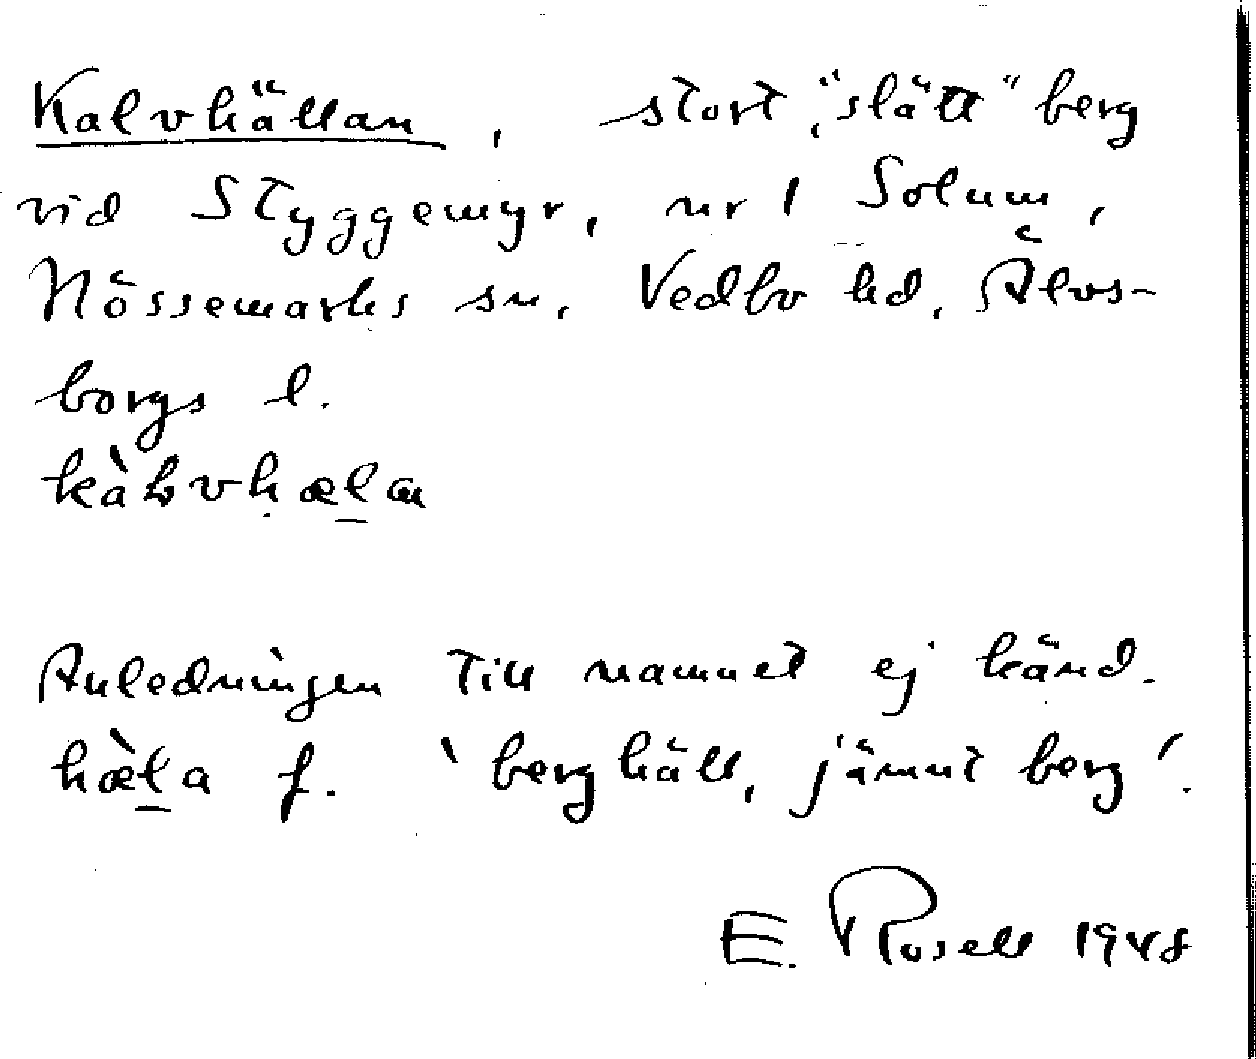 Kalvhällan, stort, "slätt" berg
vid Styggemyr, nr 1 Solum,
Nössemarks sn, Vedbo hd, Älvs-
borgs l.
kàɫvhælan
Anledningen till namnet ej känd.
hæ̀la f. 'berghäll, jämnt berg'.
E. Rosell 1948